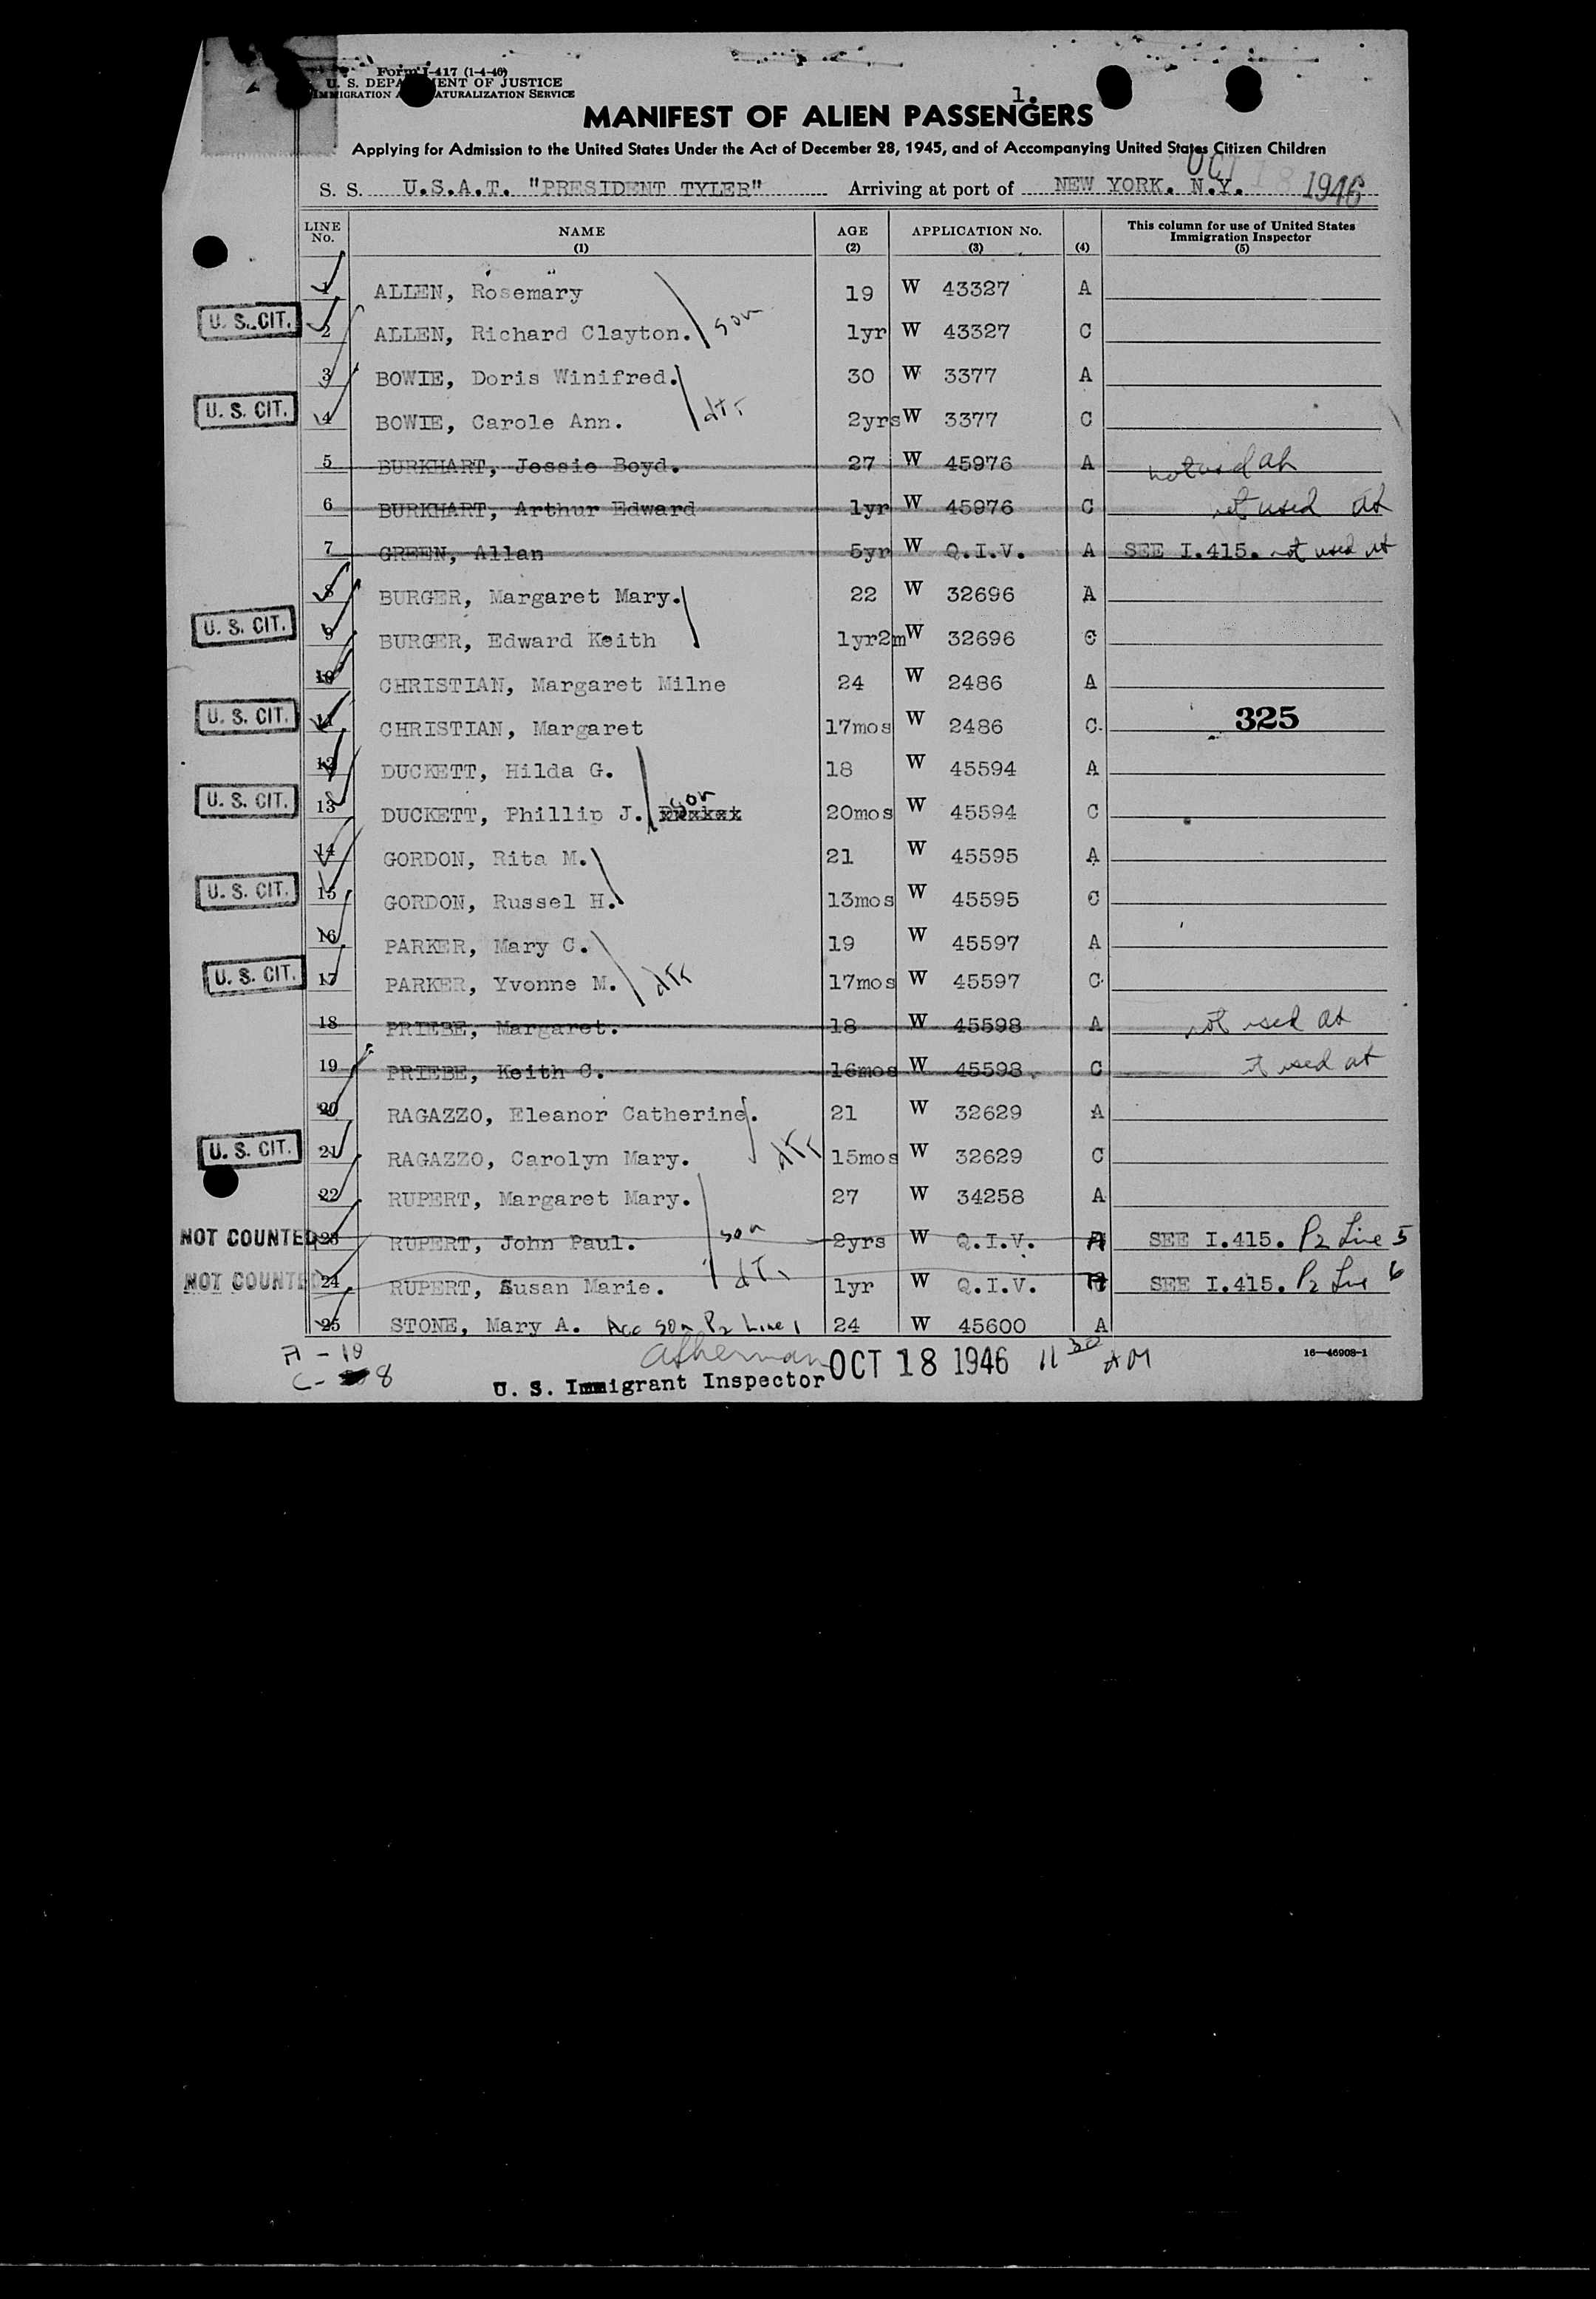 Form I-417 (1-4-46)
U. S. DEPARTMENT OF JUSTICE
IMMIGRATION AND NATURALIZATION SERVICE
1.
MANIFEST OF ALIEN PASSENGERS
Applying for Admission to the United States Under the Act of December 28, 1945, and of Accompanying United States Citizen Children
OCT 18 1946
S. S. U.S.A.T. "PRESIDENT TYLER" Arriving at port of NEW YORK. N.Y.
LINE No. NAME (1) AGE (2) APPLICATION No. (3) (4) This column for use of United States Immigration Inspector (5)
1 ALLEN, Rosemary 19 W 43327 A
U. S. CIT. 2 ALLEN, Richard Clayton. son 1yr W 43327 C
3 BOWIE, Doris Winifred. 30 W 3377 A
U. S. CIT. 4 BOWIE, Carole Ann. dtr 2yrs W 3377 C
5 BURKHART, Jessie Boyd. 27 W 45976 A not used
6 BURKHART, Arthur Edward 1yr W 45976 C not used
7 GREEN, Allan 5yr W Q.I.V. A SEE I.415. not used
8 BURGER, Margaret Mary. 22 W 32696 A
U. S. CIT. 9 BURGER, Edward Keith 1yr2m W 32696 C
10 CHRISTIAN, Margaret Milne 24 W 2486 A
U. S. CIT. 11 CHRISTIAN, Margaret 17mos W 2486 C. 325
12 DUCKETT, Hilda G. 18 W 45594 A
U. S. CIT. 13 DUCKETT, Phillip J. son 20mos W 45594 C
14 GORDON, Rita M. 21 W 45595 A
U. S. CIT. 15 GORDON, Russel H. 13mos W 45595 C
16 PARKER, Mary C. 19 W 45597 A
U. S. CIT. 17 PARKER, Yvonne M. dtr 17mos W 45597 C
18 PRIEBE, Margaret. 18 W 45598 A not used
19 PRIEBE, Keith C. 16mos W 45598 C used
20 RAGAZZO, Eleanor Catherine. 21 W 32629 A
U. S. CIT. 21 RAGAZZO, Carolyn Mary. dtr 15mos W 32629 C
22 RUPERT, Margaret Mary. 27 W 34258 A
NOT COUNTED 23 RUPERT, John Paul. son 2yrs W Q.I.V. A SEE I.415. P2 Line 5
NOT COUNTED 24 RUPERT, Susan Marie. dtr 1yr W Q.I.V. SEE I.415. P2 Line 6
25 STONE, Mary A. Acc son P2 Line 1 24 W 45600 A
A - 10
C - 8
OCT 18 1946 11 30 AM
16—46908-1
U. S. Immigrant Inspector